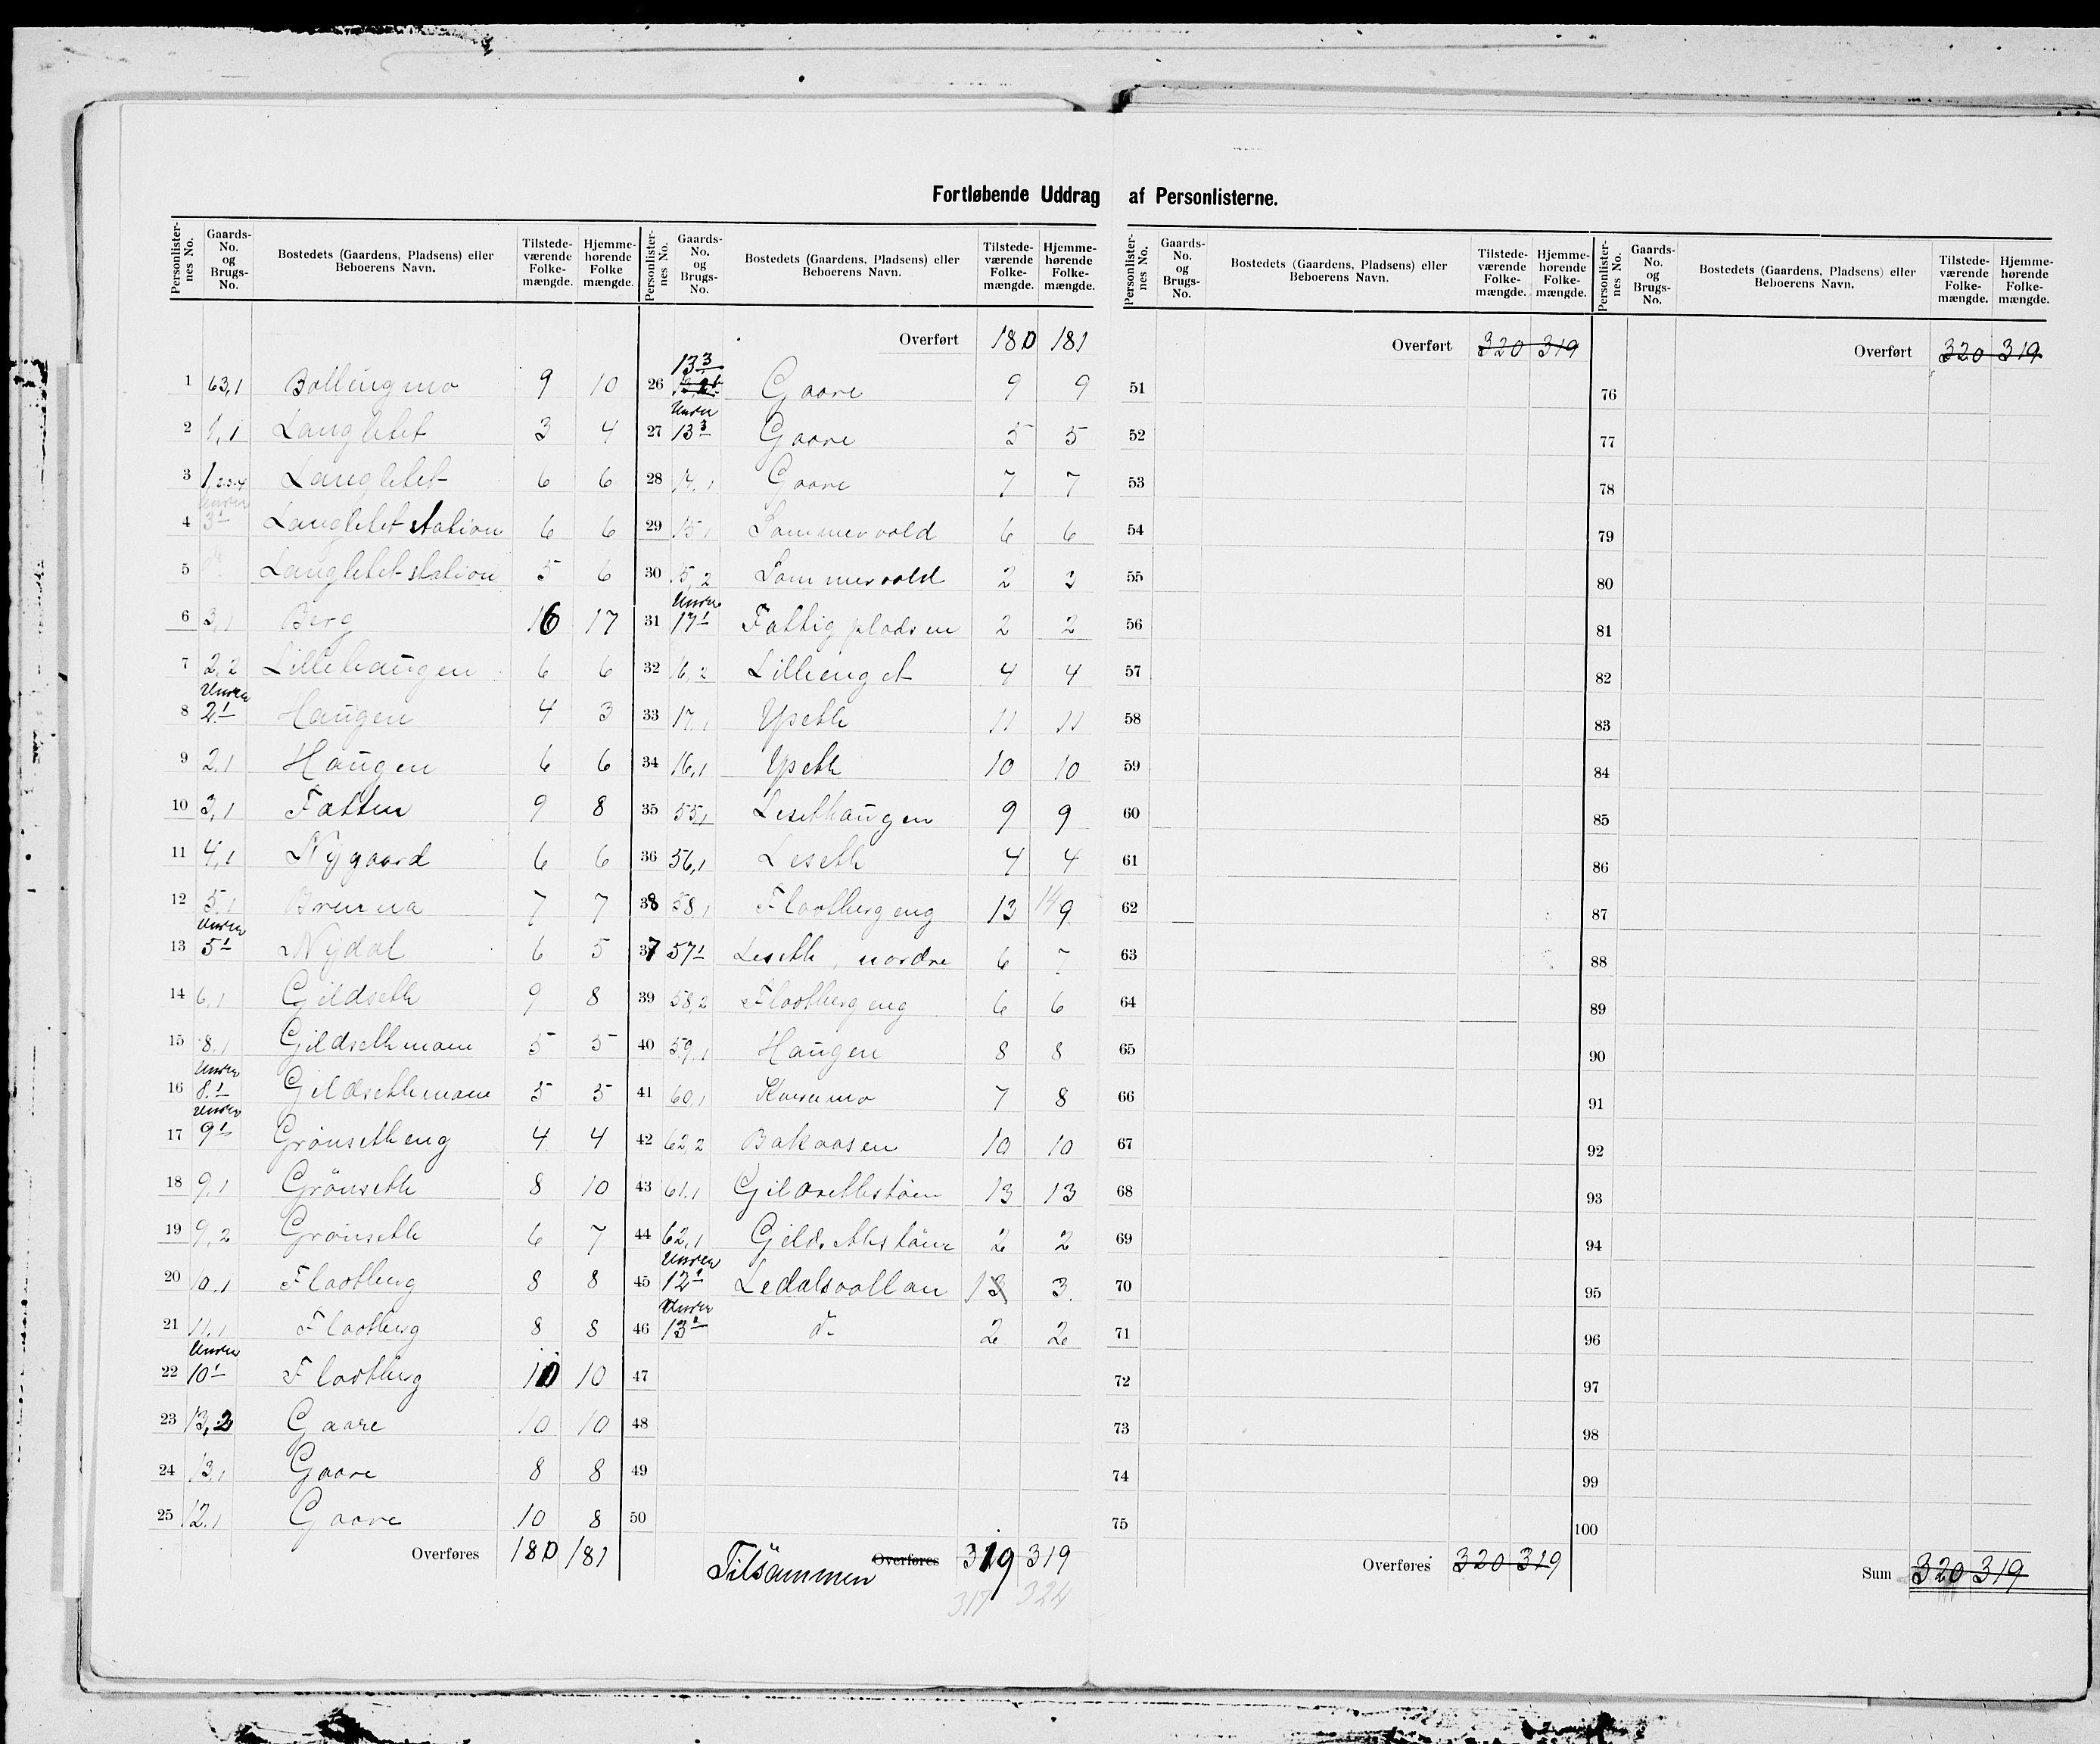 Fortløbende Uddrag af Personlisterne.
Personlisternes No. Gaards-No. og Brugs-No. Bostedets (Gaardens, Pladsens) eller Beboerens Navn. Tilstedeværende Folkemængde. Hjemmehørende Folkemængde.
1 63,1 Bollingmo 9 10
2 1,1 Langletet 3 4
3 1,23.4 Langletet 6 6
4 Under 3 1 Langletet station 6 6
5 do. Langletet station 5 6
6 3,1 Berg 16 17
7 2,2 Lillehaugen 6 6
8 Under 2.1 Haugen 4 3
9 2,1 Haugen 6 6
10 3,1 Fatten 9 8
11 4,1 Nygaard 6 6
12 5,1 Brenna 7 7
13 Under 5 1 Nydal 6 5
14 6,1 Gildseth 9 8
15 8,1 Gildsethmoen 5 5
16 Under 8.1 Gildsethmoen 5 5
17 Under 9 1 Grönsetheng 4 4
18 9,1 Grönseth 8 10
19 9,2 Grönseth 6 7
20 10,1 Flaatberg 8 8
21 11,1 Flaatberg 8 8
22 Under 10 1 Flaatberg 10 10
23 13,2 Gaare 10 10
24 13,1 Gaare 8 8
25 12,1 Gaare 10 8
Overføres 180 181
Personlisternes No. Gaards-No. og Brugs-No. Bostedets (Gaardens, Pladsens) eller Beboerens Navn. Tilstedeværende Folkemængde. Hjemmehørende Folkemængde.
Overført 180 181
26 13 3 Gaare 9 9
27 Under 13 3 Gaare 5 5
28 14,1 Gaare 7 7
29 15,1 Sommervold 6 6
30 15,2 Sommervold 2 3
31 Under 17 1 Fattigpladsen 2 2
32 16,2 Lillienget 4 4
33 17,1 Ypseth 11 11
34 16,1 Ypseth 10 10
35 55,1 Lesethaugen 9 9
36 56,1 Leseth 4 4
38 58,1 Flaatbergeng 13 14 9
37 57 1 Leseth, nordre 6 7
39 58,2 Flaatbergeng 6 6
40 59,1 Haugen 8 8
41 60,1 7 8
42 62,2 Bakaasen 10 10
43 61,1 Gildsethstöen 13 13
44 62,1 Gildsethstöen 2 2
45 Under 12 1 Ledalsvollan 13 3
46 Under 13 2 do 2 2
47
48
49
50
Tilsammen Overføres 319 319
317 324
Personlisternes No. Gaards-No. og Brugs-No. Bostedets (Gaardens, Pladsens) eller Beboerens Navn. Tilstedeværende Folkemængde. Hjemmehørende Folkemængde.
Overført 320 319
51
52
53
54
55
56
57
58
59
60
61
62
63
64
65
66
67
68
69
70
71
72
73
74
75
Overføres 320 319
Personlisternes No. Gaards-No. og Brugs-No. Bostedets (Gaardens, Pladsens) eller Beboerens Navn. Tilstedeværende Folkemængde. Hjemmehørende Folkemængde.
Overført 320 319
76
77
78
79
80
81
82
83
84
85
86
87
88
89
90
91
92
93
94
95
96
97
98
99
100
Sum 320 319